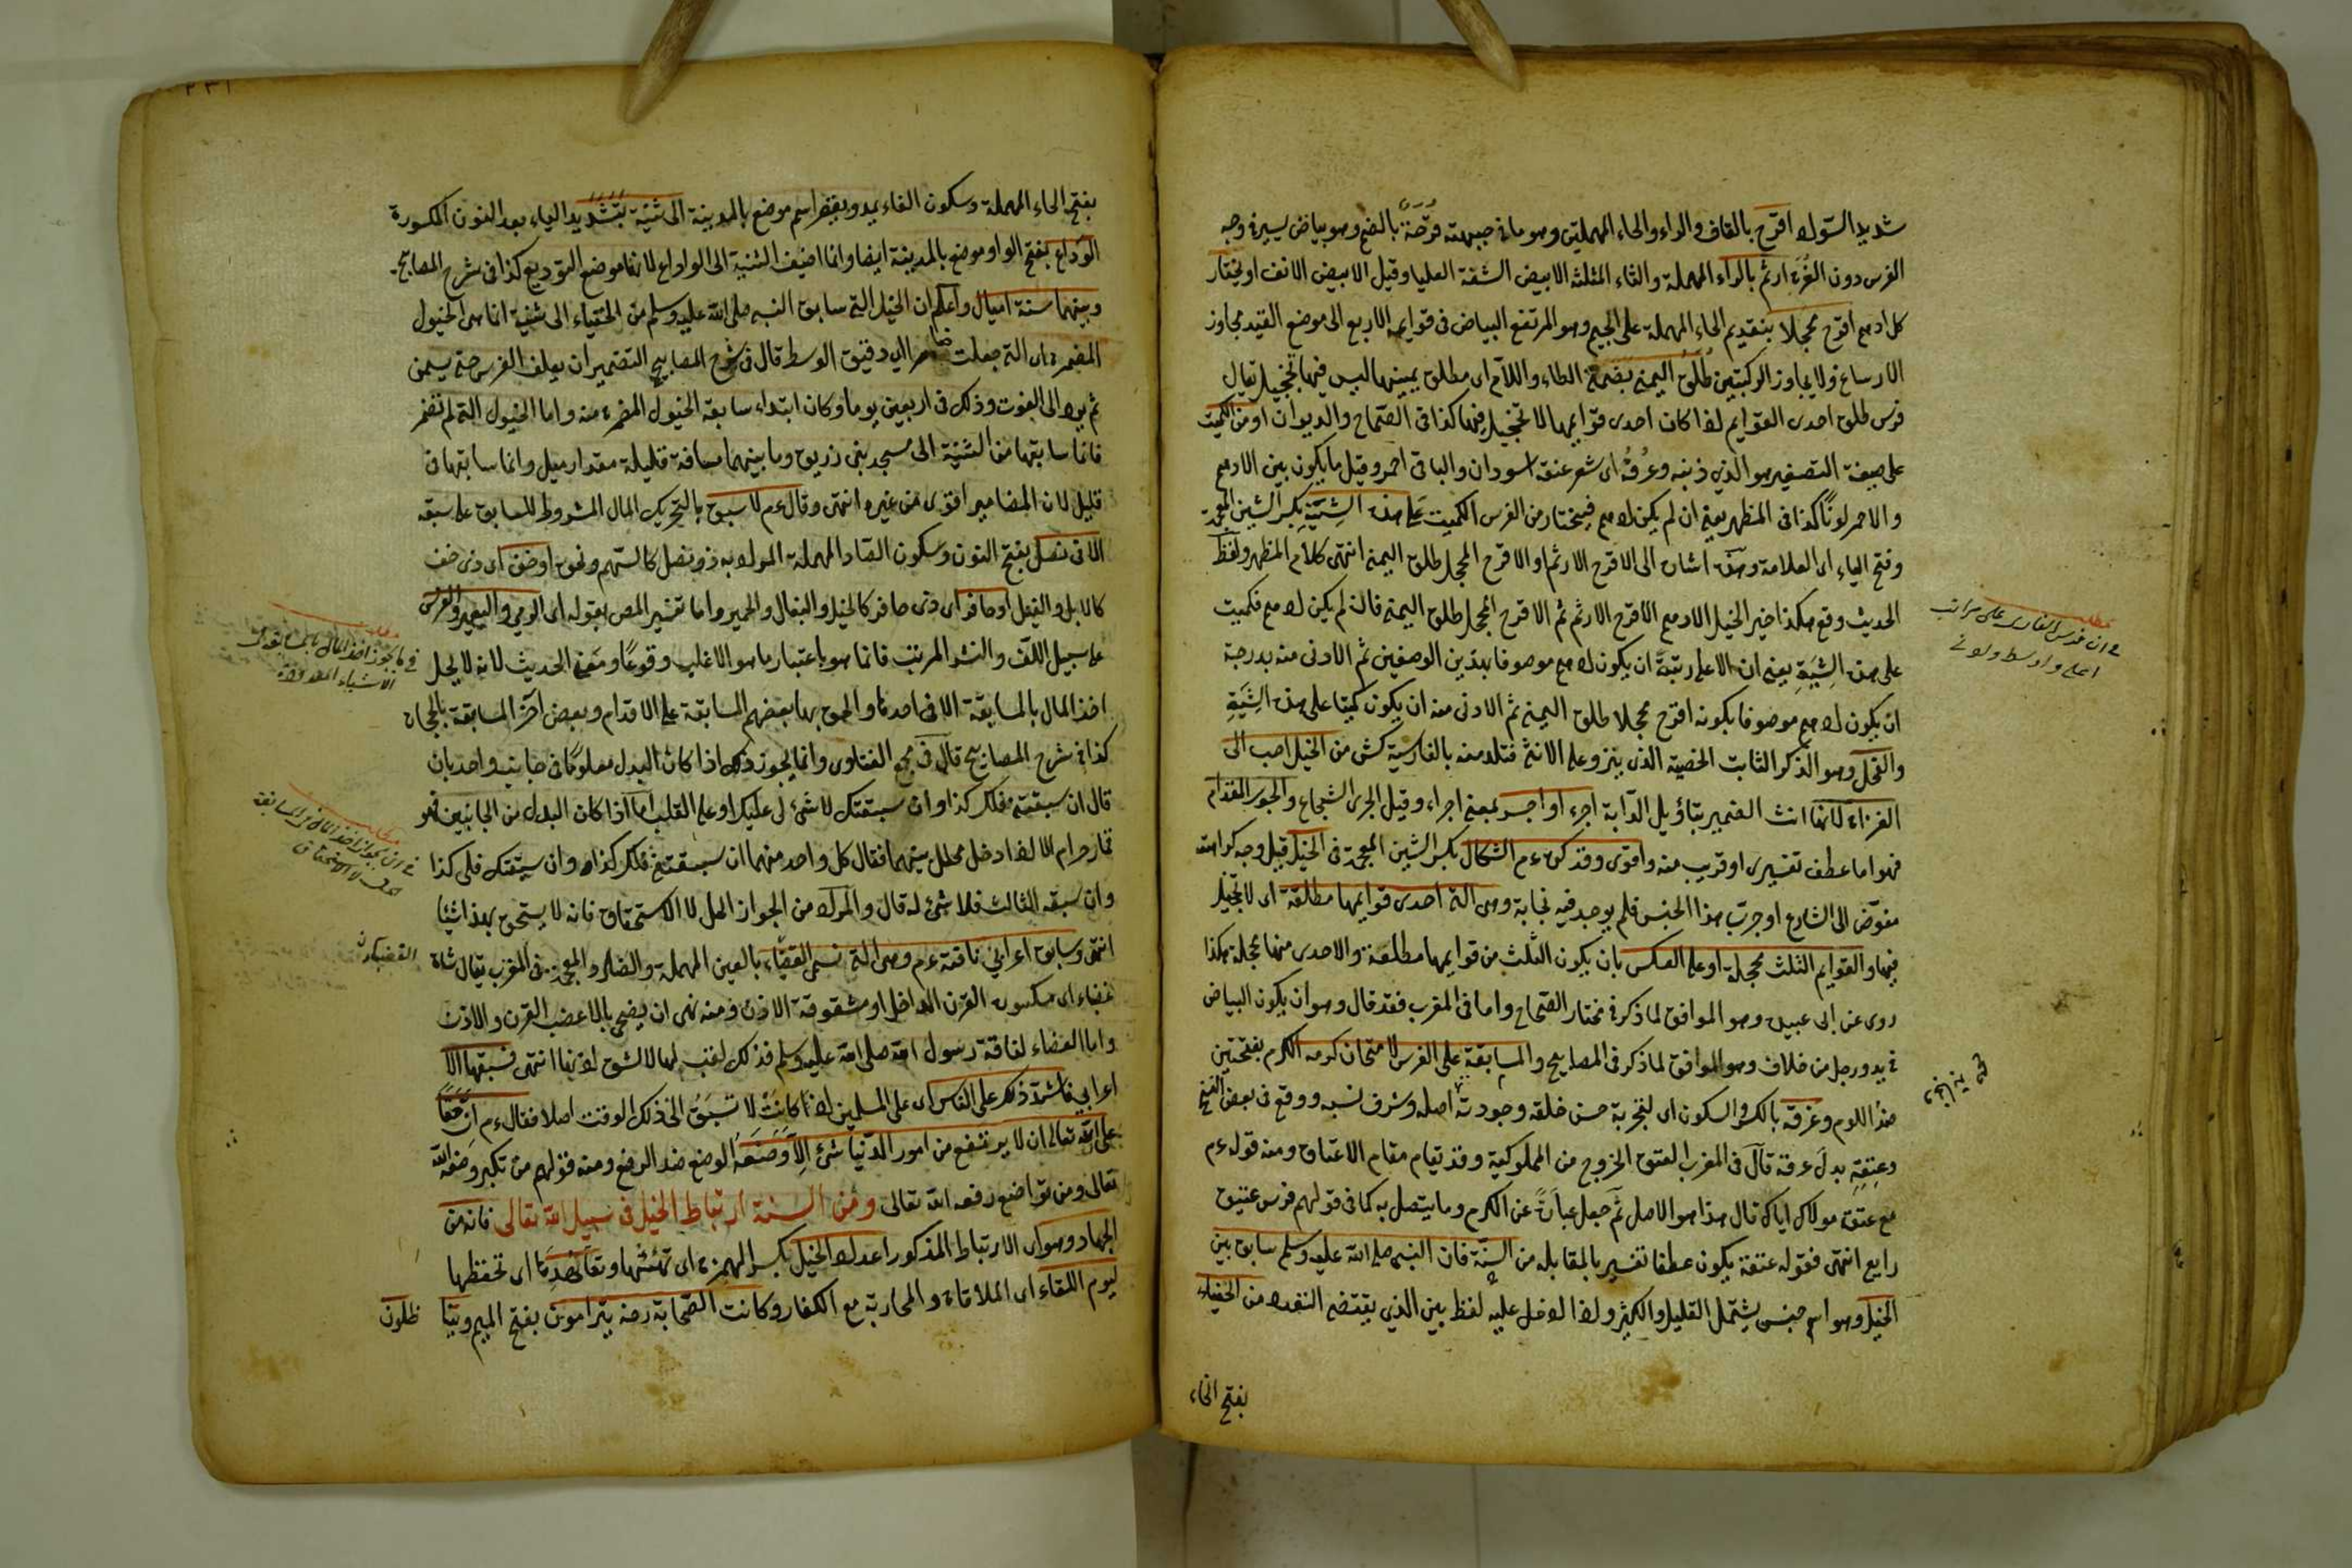 شديد السواد اقرح بالقاف والراء والحاء المهملتين وهو ما في جبهته قرحة بالضم وهو بياض يسير في وجه
الفرس دون الغرة ارثم بالراء المهملة والثاء المثلثة الابيض الشفة العليا وقيل الابيض الانف او يختار
كل ادهم اقرح محجلا بتقديم الحاء المهملة على الجيم وهو المرتفع البياض في قوايمه الاربع الى موضع القيد مجاوز
الارساغ ولا يجاوز الركبتين طلق اليمنى بضمة الطاء واللام اى مطلق يمينها ليس فيها تحجيل يقال
فرس طلق احدى القوايم اذا كان احدى قوايمها لا تحجيل فيها كذا في الصحاح والديوان او من الكميت
على صيغة التصغير هو الذي ذنبه وعرفه اى شعر عنقه اسودان والباقى احمر وقيل ما يكون بين الادهم
والاحمر لونا كذا في المظهر يعنى ان لم يكن ادهم فيختار من الفرس الكميت على هذه الشية بكسر الشين المعجمة
وفتح الياء اى العلامة وهذه اشارة الى الاقرح الارثم او الاقرح المحجل طلق اليمنى انتهى كلام المظهر ولفظ
الحديث وقع هكذا خير الخيل الادهم الاقرح الارثم ثم الاقرح المحجل طلق اليمنى فان لم يكن ادهم فكميت
على هذه الشية يعنى ان الاعلى رتبة ان يكون ادهم موصوفا بهذين الوصفين ثم الادنى منه بدرجة
ان يكون ادهم موصوفا بكونه اقرح محجلا طلق اليمنى ثم الادنى منه ان يكون كميتا على هذه الشية
والفحل وهو الذكر الثابت الخصية الذى ينزو على الانثى فتلد منه بالفارسية كشن من الخيل احب الى
الغزاة لانها انث الضمير بتأويل الدابة اجرء او اجسر بمعنى اجراء وقيل الجرى الشجاع والجسور المقدام
فهو اما عطف تفسيرى او قريب منه واقوى وقد كره عم الشكال بكسر الشين المعجمة في الخيل قيل وجه كراهته
مفوض الى الشارع او جرب هذا الجنس فلم يوجد فيه نجابة وهى التى احدى قوايمها مطلقة اى لا تحجيل
فيها والقوايم الثلث محجلة او على العكس بان يكون الثلث من قوايمها مطلقة والاحدى منها محجلة هكذا
روى عن ابى عبيد وهو الموافق لما ذكر في مختار الصحاح واما في المغرب فقد قال وهو ان يكون البياض
في يد ورجل من خلاف وهو الموافق لما ذكر في المصابيح والمسابقة على الفرس لامتحان كرمه الكرم بفتحتين
ضد اللوم وعرقه بالكسر والسكون اى لتجربة حسن خلقه وجودته اصله وشرف نسبه ووقع في بعض النسخ
وعتقه بدل عرقه قال في المغرب العتق الخروج من المملوكية وقد يقام مقام الاعتاق ومنه قوله عم
مع عتق مولاك اياك قال هذا هو الاصل ثم جعل عبارة عن الكرم وما يتصل به كما في قولهم فرس عتيق
رايع انتهى فقوله عتقه يكون عطفا تفسير بالمقابله من السنة فان النبى صلى الله عليه وسلم سابق بين
الخيل وهو اسم جنس يشتمل القليل والكثير ولذا ادخل عليه لفظ بين الذي يقتضى التعدد من الحفياء
بفتح الحاء
مطلب
في ان فرس الغازى على مراتب
اعلى واوسط وادنى
٢٣١
بفتح الحاء المهملة وسكون الفاء يمد ويقصر اسم موضع بالمدينة الى ثنية بتشديد الياء بعد النون المكسورة
الوداع بفتح الواو موضع بالمدينة ايضا وانما اضيف الثنية الى الوداع لانها موضع التوديع كذا في شرح المصابيح
وبينهما ستة اميال واعلم ان الخيل التى سابق النبى صلى الله عليه وسلم من الحفياء الى ثنية انما هى الخيول
المضمرة اى التى جعلت ضامرا اى دقيق الوسط قال في شرح المصابيح التضمير ان يعلف الفرس حتى يسمن
ثم يرد الى القوت وذلك في اربعين يوما وكان ابتداء سابقة الخيول المضمرة منه واما الخيول التى لم تضمر
فانما سابقها من الثنية الى مسجد بنى زريق وما بينهما مسافة قليلة مقدار ميل وانما سابقها في
قليل لان المضامير اقوى من غيره انتهى وقال عم لا سبق بالتحريك المال المشروط للسابق على سبقه
الا في نصل بفتح النون وسكون الصاد المهملة المراد به ذو نصل كالسهم ونحوه او خف اى ذى خف
كالابل والفيل او حافر اى ذى حافر كالخيل والبغال والحمير واما تفسير المصن بقوله اى الرمى والبعير والفرس
على سبيل اللف والنشر المرتب فانما هو باعتبار ما هو الاغلب وقوعا ومعنى الحديث لانه لا يحل
اخذ المال بالمسابقة الا في احدها والحق بها بعضهم المسابقة على الاقدام وبعض آخر المسابقة بالحجارة
كذا في شرح المصابيح قال في مجمع الفتاوى وانما يجوز ذلك اذا كان البدل معلوما في جانب واحد بان
قال ان سبقتنى فلك كذا وان سبقتك لا شئ لى عليك او على القلب اما اذا كان البدل من الجانبين فهو
قمار حرام الا اذا ادخل محلل بينهما فقال كل واحد منهما ان سبقتنى فلك كذا وان سبقتك فلى كذا
وان سبقه الثالث فلا شئ له قال والمراد من الجواز الحل لا الاستحقاق فانه لا يستحق بهذا شئا
انتهى وسابق اعرابى ناقته عم وهى التى تسمى العضباء بالعين المهملة والضاد المعجمة في المغرب يقال شاة
عضباء اى مكسورة القرن الداخل او مشقوقة الاذن ومنه نهى ان يضحى بالاعضب القرن والاذن
واما العضباء لناقة رسول الله صلى الله عليه وسلم فذلك لقب لها لا لشق اذنها انتهى فسبقها الا
اعرابى فاشتد ذلك على الناس اى على المسلمين اذا كانت لا تسبق الى ذلك الوقت اصلا فقال عم ان حقا
على الله تعالى ان لا يرتفع من امور الدنيا شئ الا وضعه الوضع ضد الرفع ومنه قولهم من تكبر وضعه الله
تعالى ومن تواضع رفعه الله تعالى ومن السنة ارتباط الخيل في سبيل الله تعالى فانه من
الجهاد وهو اى الارتباط المذكور اعداد الخيل بكسر الهمزة اى تهئتها وتعاهدها اى تحفظها
ليوم اللقاء اى الملاقاة والمحاربة مع الكفار وكانت الصحابة رضه يترامون بفتح الميم ويتنا
ظلون
مطلب
في ما يجوز اخذ المال بالمسابقة في
الاشياء المعدودة
مطلب
في ان جواز اخذ المال في المسابقة
لا الاستحقاق